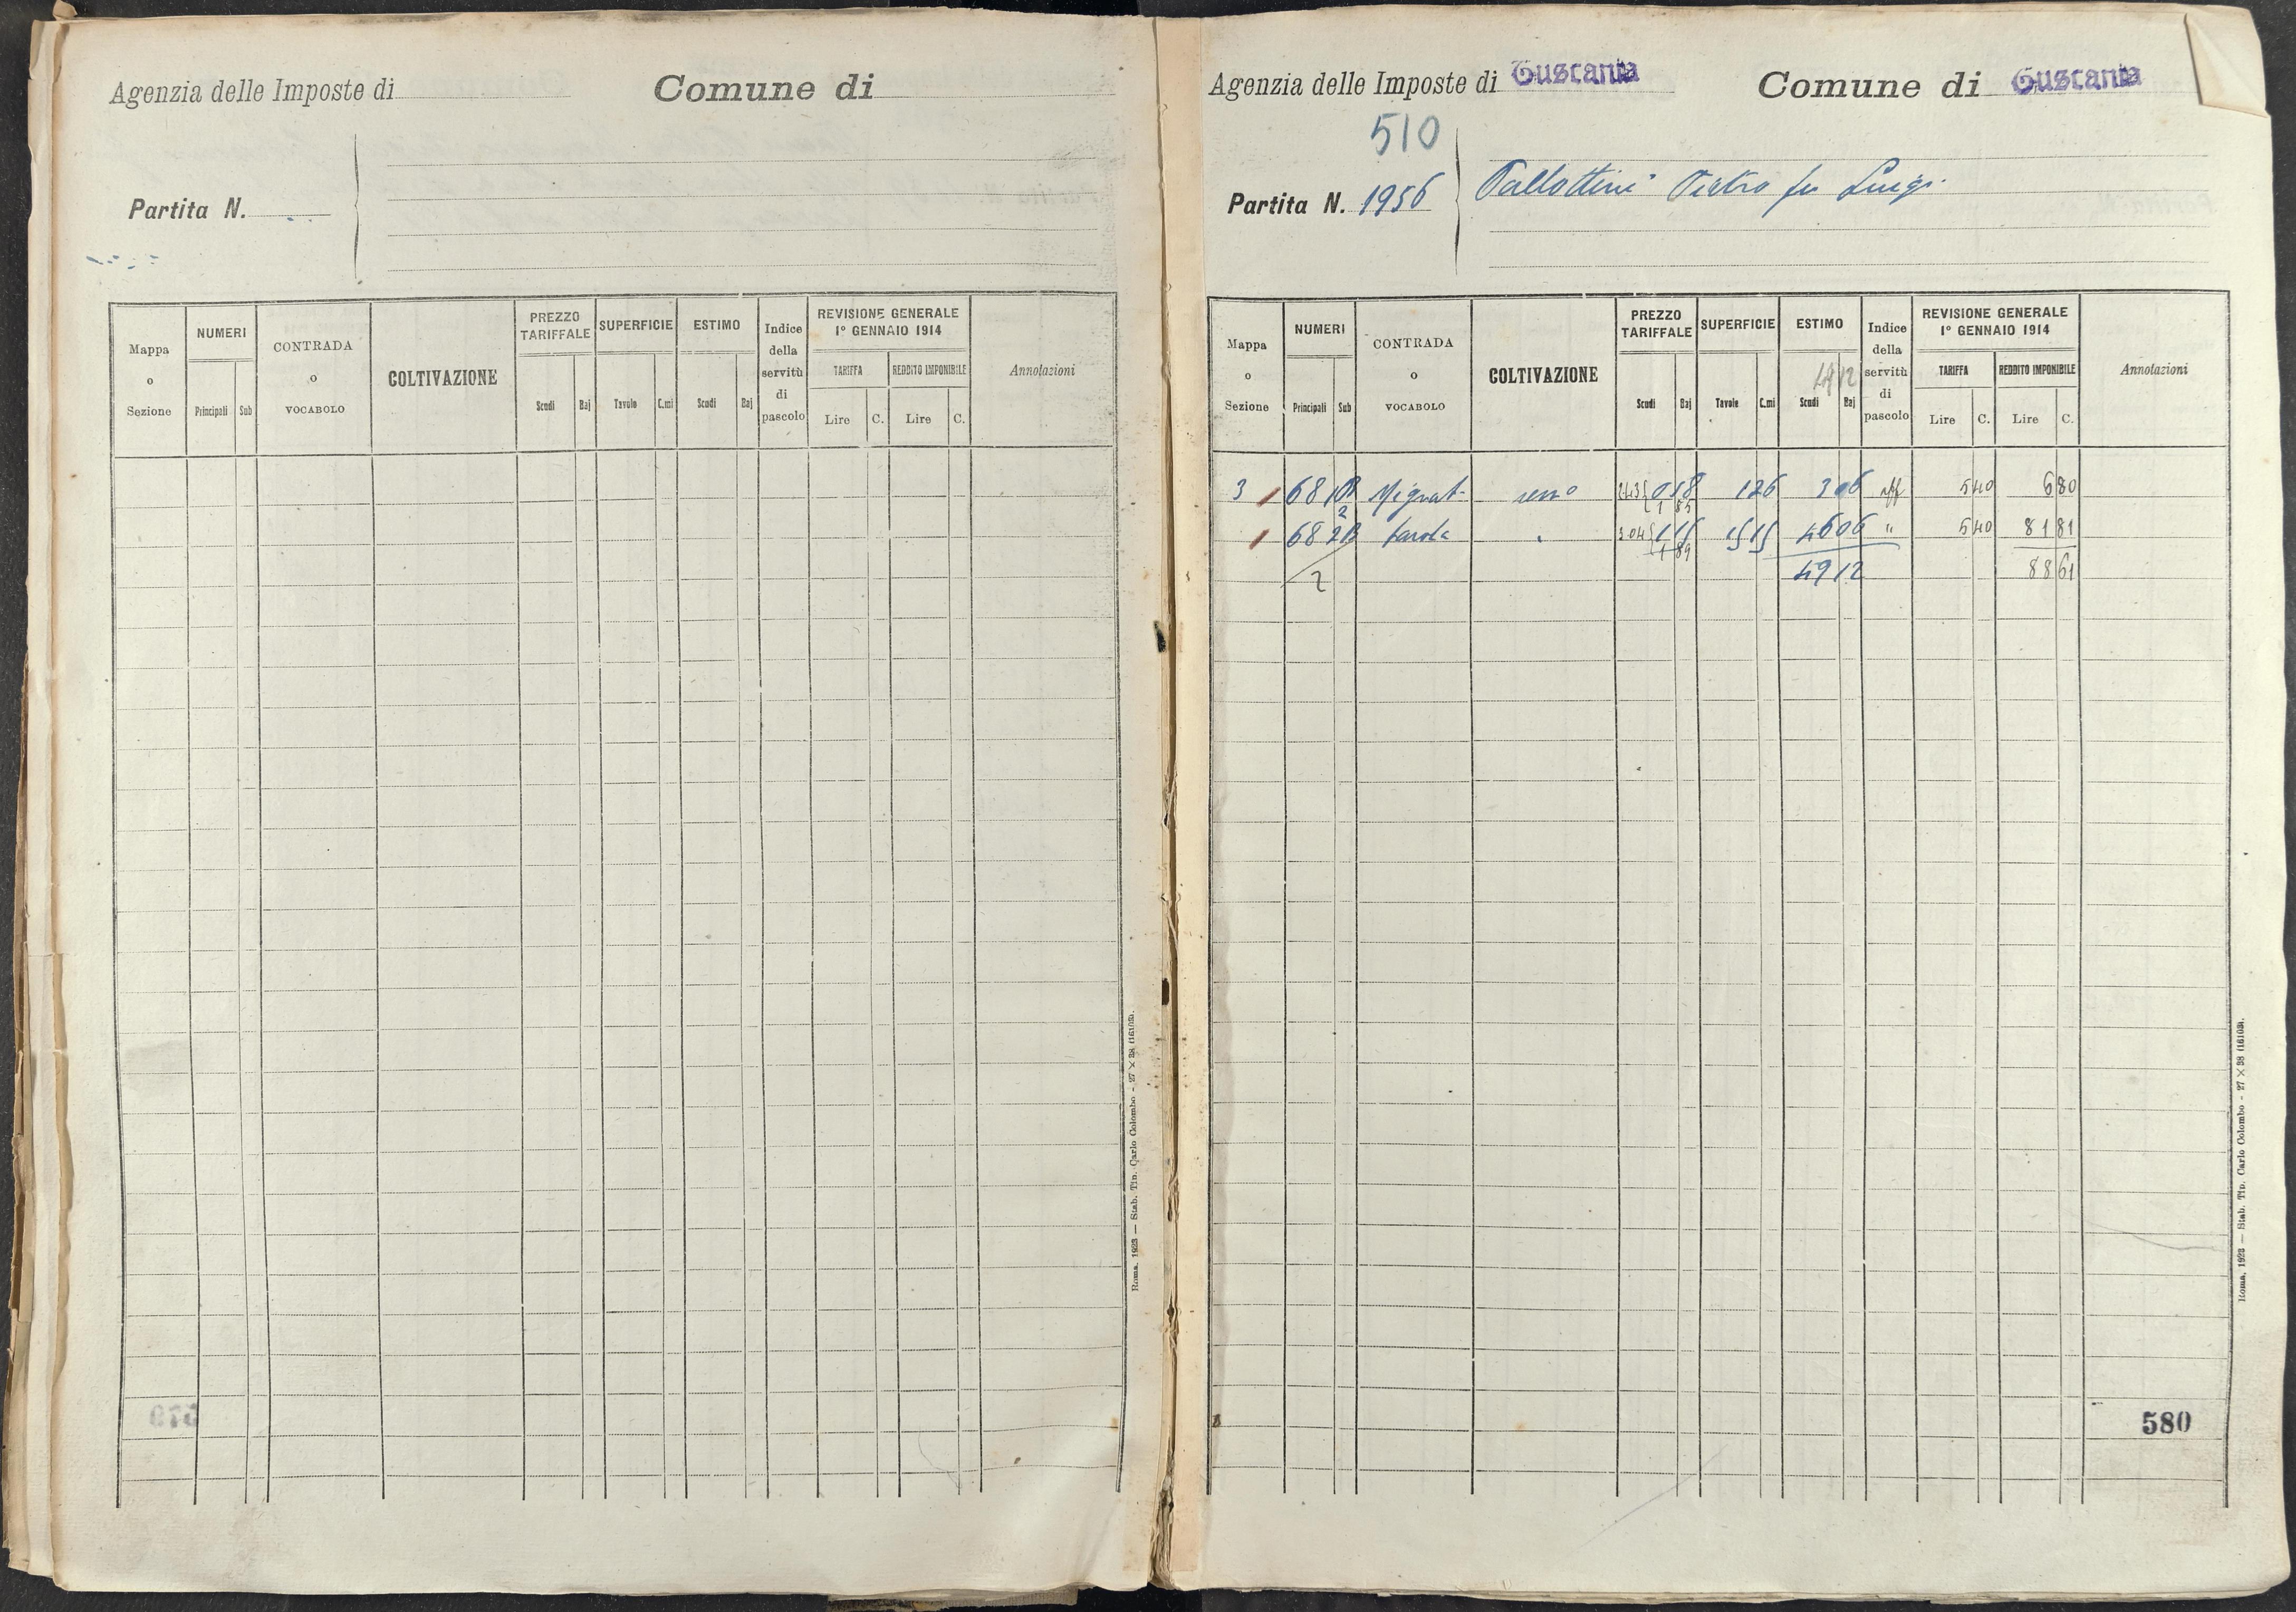 Agenzia delle Imposte di
Comune di
Partita N.
Mappa o Sezione
NUMERI
Principali
Sub
CONTRADA o VOCABOLO
COLTIVAZIONE
PREZZO TARIFFALE
Scudi
Baj
SUPERFICIE
Tavole
C.mi
ESTIMO
Scudi
Baj
Indice della servitù di pascolo
REVISIONE GENERALE
1° GENNAIO 1914
TARIFFA
Lire
C.
REDDITO IMPONIBILE
Lire
C.
Annotazioni
Roma, 1923 — Stab. Tip. Carlo Colombo - 27 × 38 (16103).
Agenzia delle Imposte di Tuscania
Comune di Tuscania
510
Partita N. 1956
Pallottini Pietro fu Luigi
Mappa o Sezione
NUMERI
Principali
Sub
CONTRADA o VOCABOLO
COLTIVAZIONE
PREZZO TARIFFALE
Scudi
Baj
SUPERFICIE
Tavole
C.mi
ESTIMO
4912
Scudi
Baj
Indice della servitù di pascolo
REVISIONE GENERALE
1° GENNAIO 1914
TARIFFA
Lire
C.
REDDITO IMPONIBILE
Lire
C.
Annotazioni
3 68 1 Mignat- 243 058 1 85 126 306 aff 540 680
68 2B tarola 304 115 1 89 1515 4606 " 540 8181
2 4912 8861
580
Roma, 1923 — Stab. Tip. Carlo Colombo - 27 × 38 (16103).